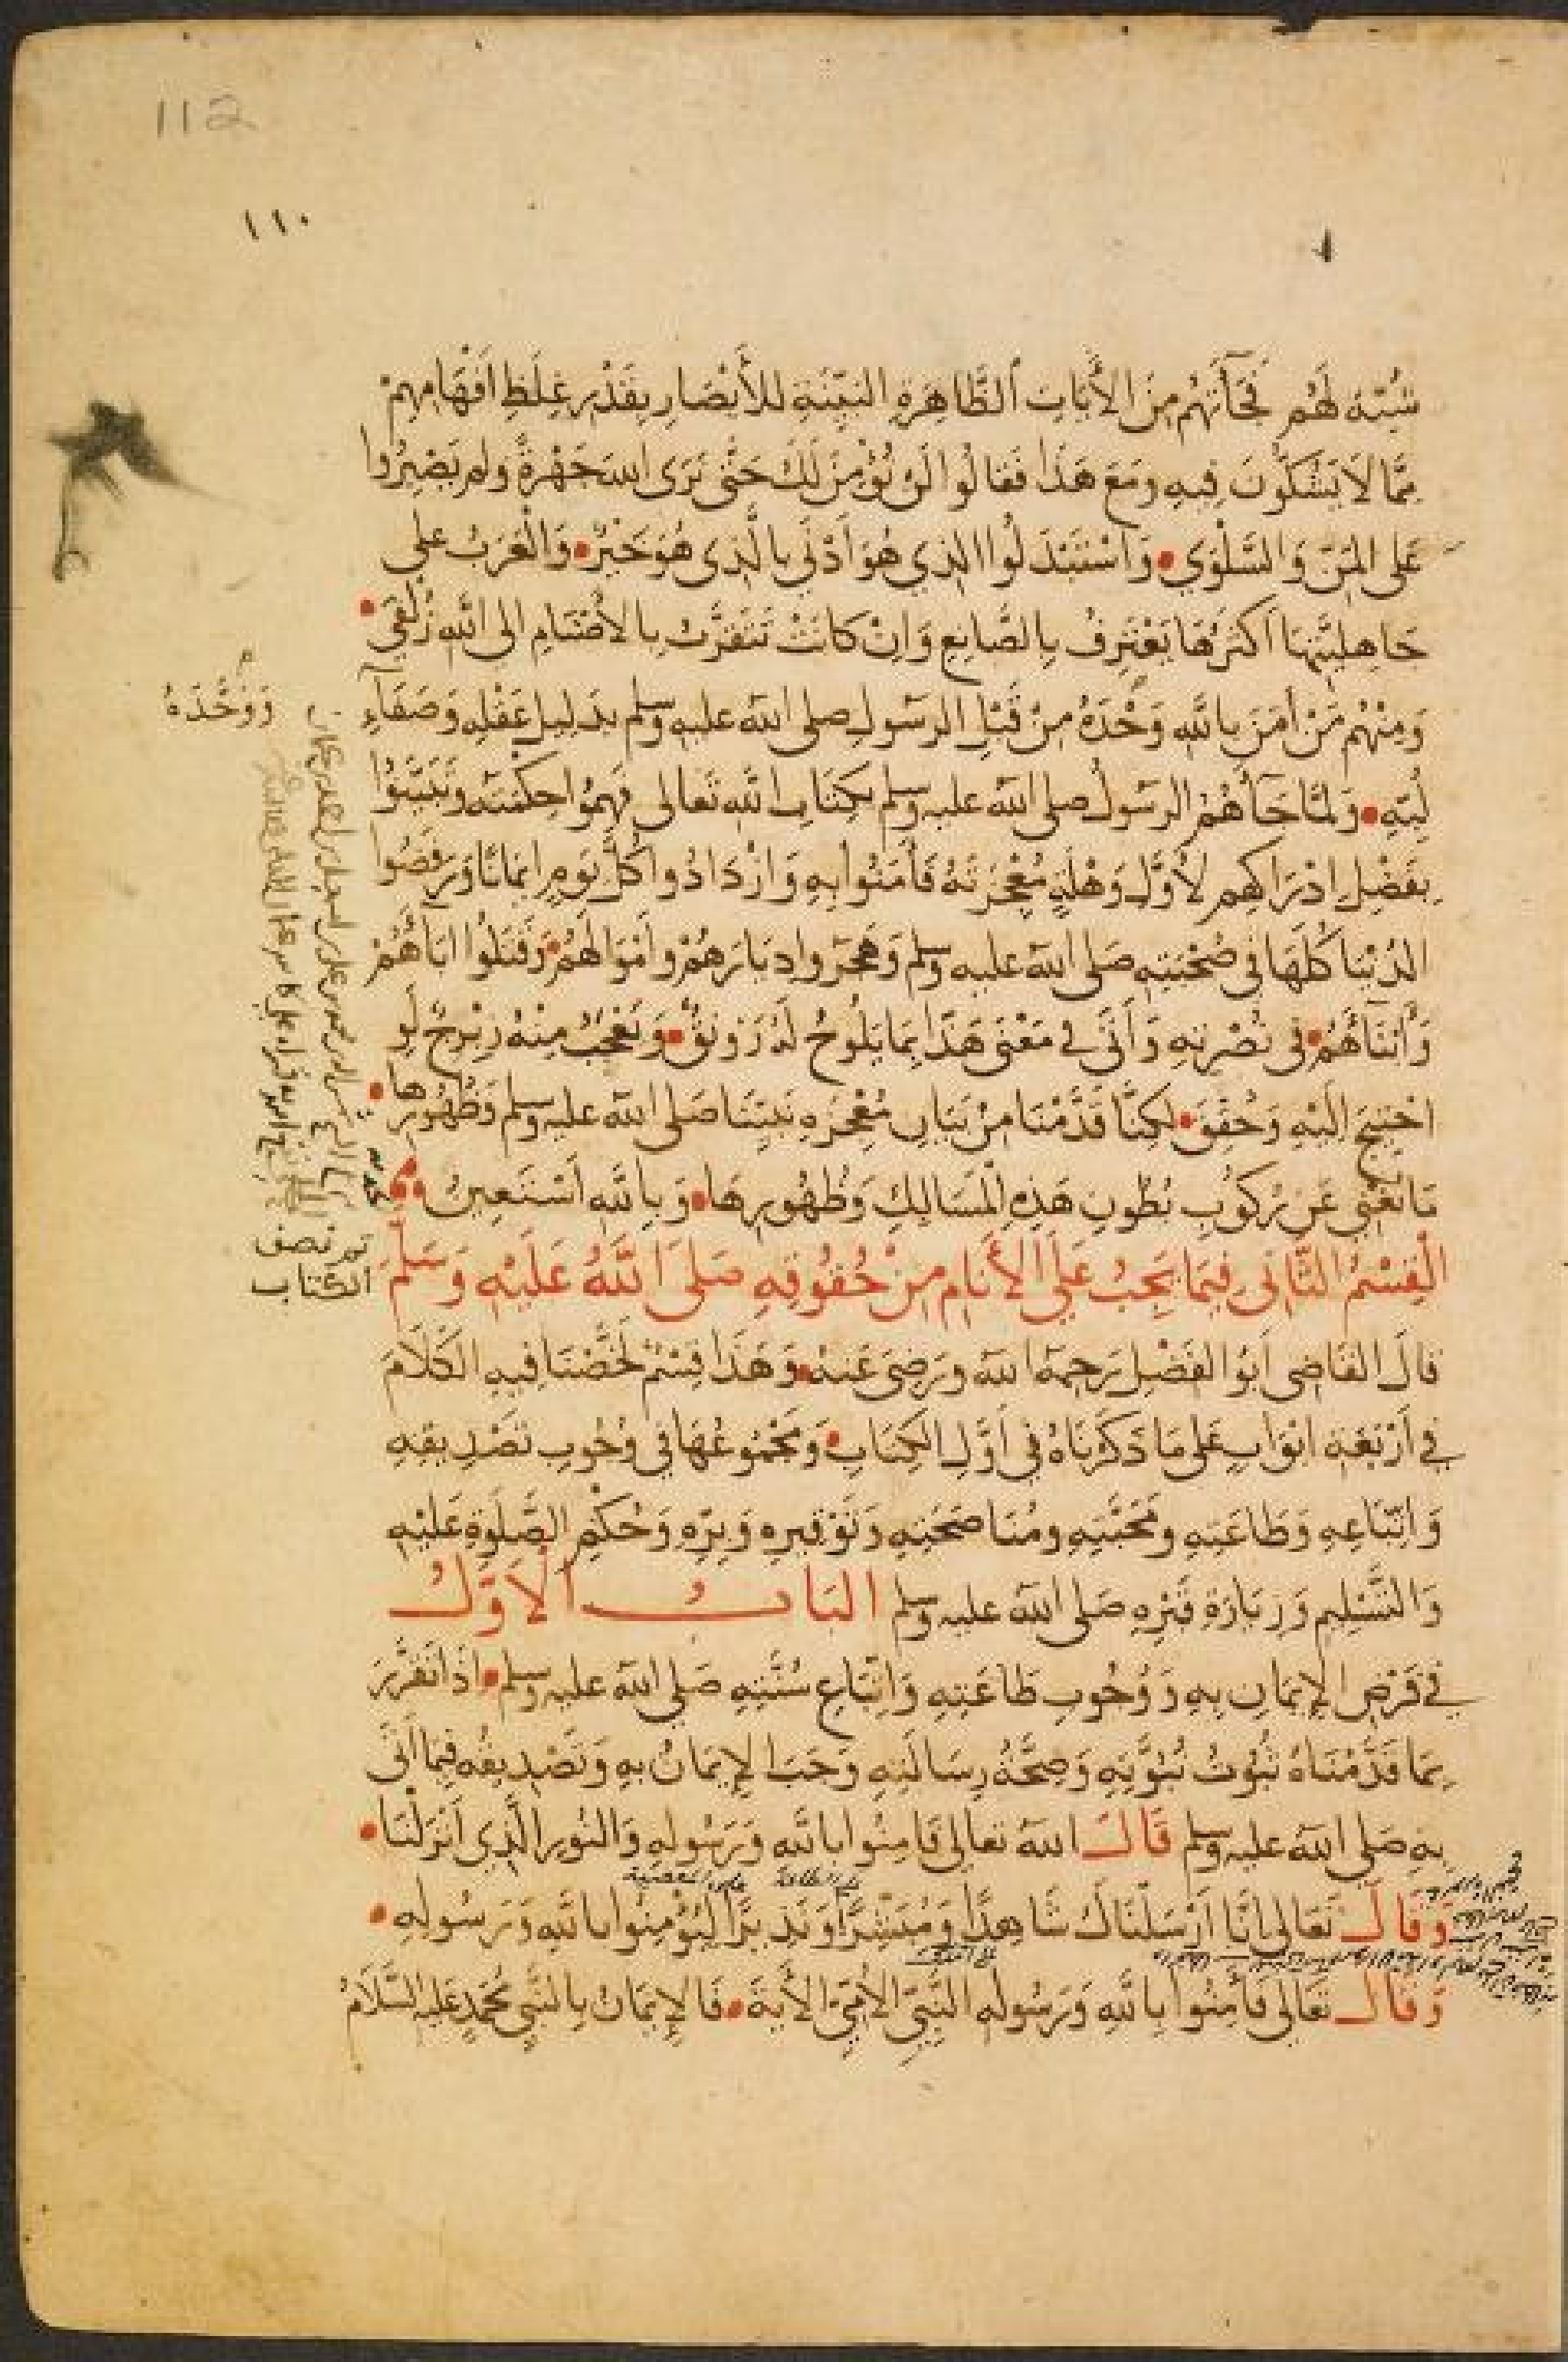 112
١١٠
شُبِّهَ لَهُم فَجَآءَتْهُم مِنَ الأَيَاتِ الظَّاهِرَةِ البَيِّنَةِ لِلأَبْصَارِ بِقَدْرِ غِلَظِ اَفْهَامِهِمْ
مِمَّا لَا يَشُكُّونَ فِيهِ وَمَعَ هَذَا فَقَالُوا لَنْ نُؤْمِنَ لَكَ حَتَّى نَرَى اللهَ جَهْرَةً ولم يَصْبِرُوا
عَلى المَنِّ وَالسَّلْوَى • وَاسْتَبْدَلُوا الذِي هُوَ اَدْنَى بِالَّذِى هُوَ خَيْرٌ • وَالْعَرَبُ على
جَاهِلِيَّتِهَا اَكْثَرُهَا يَعْتَرِفُ بِالصَّانِعِ وَاِنْ كَانَتْ تَتَقَرَّبُ بِالأَصْنَامِ الى اللّهِ زُلْفَى •
وَمِنْهُم مَنْ اٰمَنَ بِاللّهِ وَحْدَهُ مِنْ قَبْلِ الرَسُولِ صلى الله عليه وسلم بِدَلِيلِ عَقْلِهِ وَصَفَاءِ
وَوَحَّدَهُ
لُبِّهِ • وَلمَّا جَآءَهُمْ الرَسُولُ صلى الله عليه وسلم بِكِتَابِ اللّهِ تَعَالى فَهِمُوا حِكْمَتَه وَتَبَيَّنُوا
بِفَضْلِ اِدْرَاكِهِم لِأَوَّلِ وَهْلَةٍ مُعْجِزَتَهُ فَاٰمَنُوا بِهِ وَازْدَادُوا كُلَّ يَوْمٍ اِيمَانًا وَرَفَضُوا
الدُنْيَا كُلَّهَا فى صُحْبَتِهِ صَلى الله عليه وسلم وَهَجَرُوا دِيَارَهُمْ وَاَمْوَالَهُمْ • وَقَتَلُوا اٰبَاءَهُمْ
وَاَبْنَاءَهُمْ • فى نُصْرَتِهِ وَاَتَى فى مَعْنَى هَذَا بِمَا يَلُوحُ لَهُ رَوْنَقٌ • وَيُعْجِبُ مِنْهُ زِبْرِجٌ لَو
احْتِيجَ اِلَيْهِ وَحُقِّقَ • لكِنَّا قَدَّمْنَا مِنْ بَيَانِ مُعْجِزَةِ نَبِيِّنَا صَلى الله عليه وسلم وَظُهُورِهَا •
مَا يُغْنِي عَنْ رُكُوبِ بُطُونِ هَذِهِ المَسَالِكِ وَظُهُورِهَا • وَبِاللّهِ اَسْتَعِينُ
تم نصف
الكتاب
الْقِسْمُ الثَّانِى فِيمَا يَجِبُ عَلَى الأَنَامِ مِنْ حُقُوقِهِ صَلى اللَّهُ عَلَيْهِ وَسَلَّمَ
قالَ القَاضِى اَبُو الفَضْلِ رَحِمَهُ الله وَرَضِىَ عَنهُ • وَهَذَا قِسْمٌ لَخَّصْنَا فِيهِ الكَلَامَ
فِى اَرْبَعَةِ ابْوَابٍ عَلى مَا ذَكَرْنَاهُ فى اَوَّلِ الكِتَابِ • وَمَجْمُوعُهَا فى وُجُوبِ تَصْدِيقِهِ
وَاتِّبَاعِهِ وَطَاعَتِهِ وَمَحَبَّتِهِ وَمُنَاصَحَتِهِ وَتَوْقِيرِهِ وَبِرِّهِ وَحُكْمِ الصَّلَوةِ عَلَيْهِ
وَالتَّسْلِيمِ وَزِيَارَةِ قَبْرِهِ صَلى الله عليه وسلم البَابُ الأَوَّلُ
فِى فَرْضِ الإِيمَانِ بِهِ وَوُجُوبِ طَاعَتِهِ وَاتِّبَاعِ سُنَّتِهِ صَلى الله عليه وسلم • اذَا تَقَرَّرَ
بِمَا قَدَّمْنَاهُ ثُبُوتُ نُبُوَّتِهِ وَصِحَّةُ رِسَالَتِهِ وَجَبَ الإِيمَانُ بِهِ وَتَصْدِيقُه فِيمَا اَتَى
بِهِ صَلى الله عليه وسلم قَالَ اللهُ تَعَالى فَاٰمِنُوا بِاللّهِ وَرَسُولِهِ وَالنُورِ الَّذِى اَنْزَلْنَا •
وَقَالَ تَعَالى اِنَّا اَرْسَلْنَاكَ شَاهِدًا وَمُبَشِّرًا وَنَذِيرًا لِتُؤْمِنُوا بِاللّهِ وَرَسُولِهِ •
وَقَالَ تَعَالى فَاٰمِنُوا بِاللّهِ وَرَسُولِهِ النَّبِيِّ الأُمِّيِّ الأَيَة • فَالإِيمَانُ بِالنَّبِي مُحَمَّدٍ عَلَيْهِ السَّلَامُ